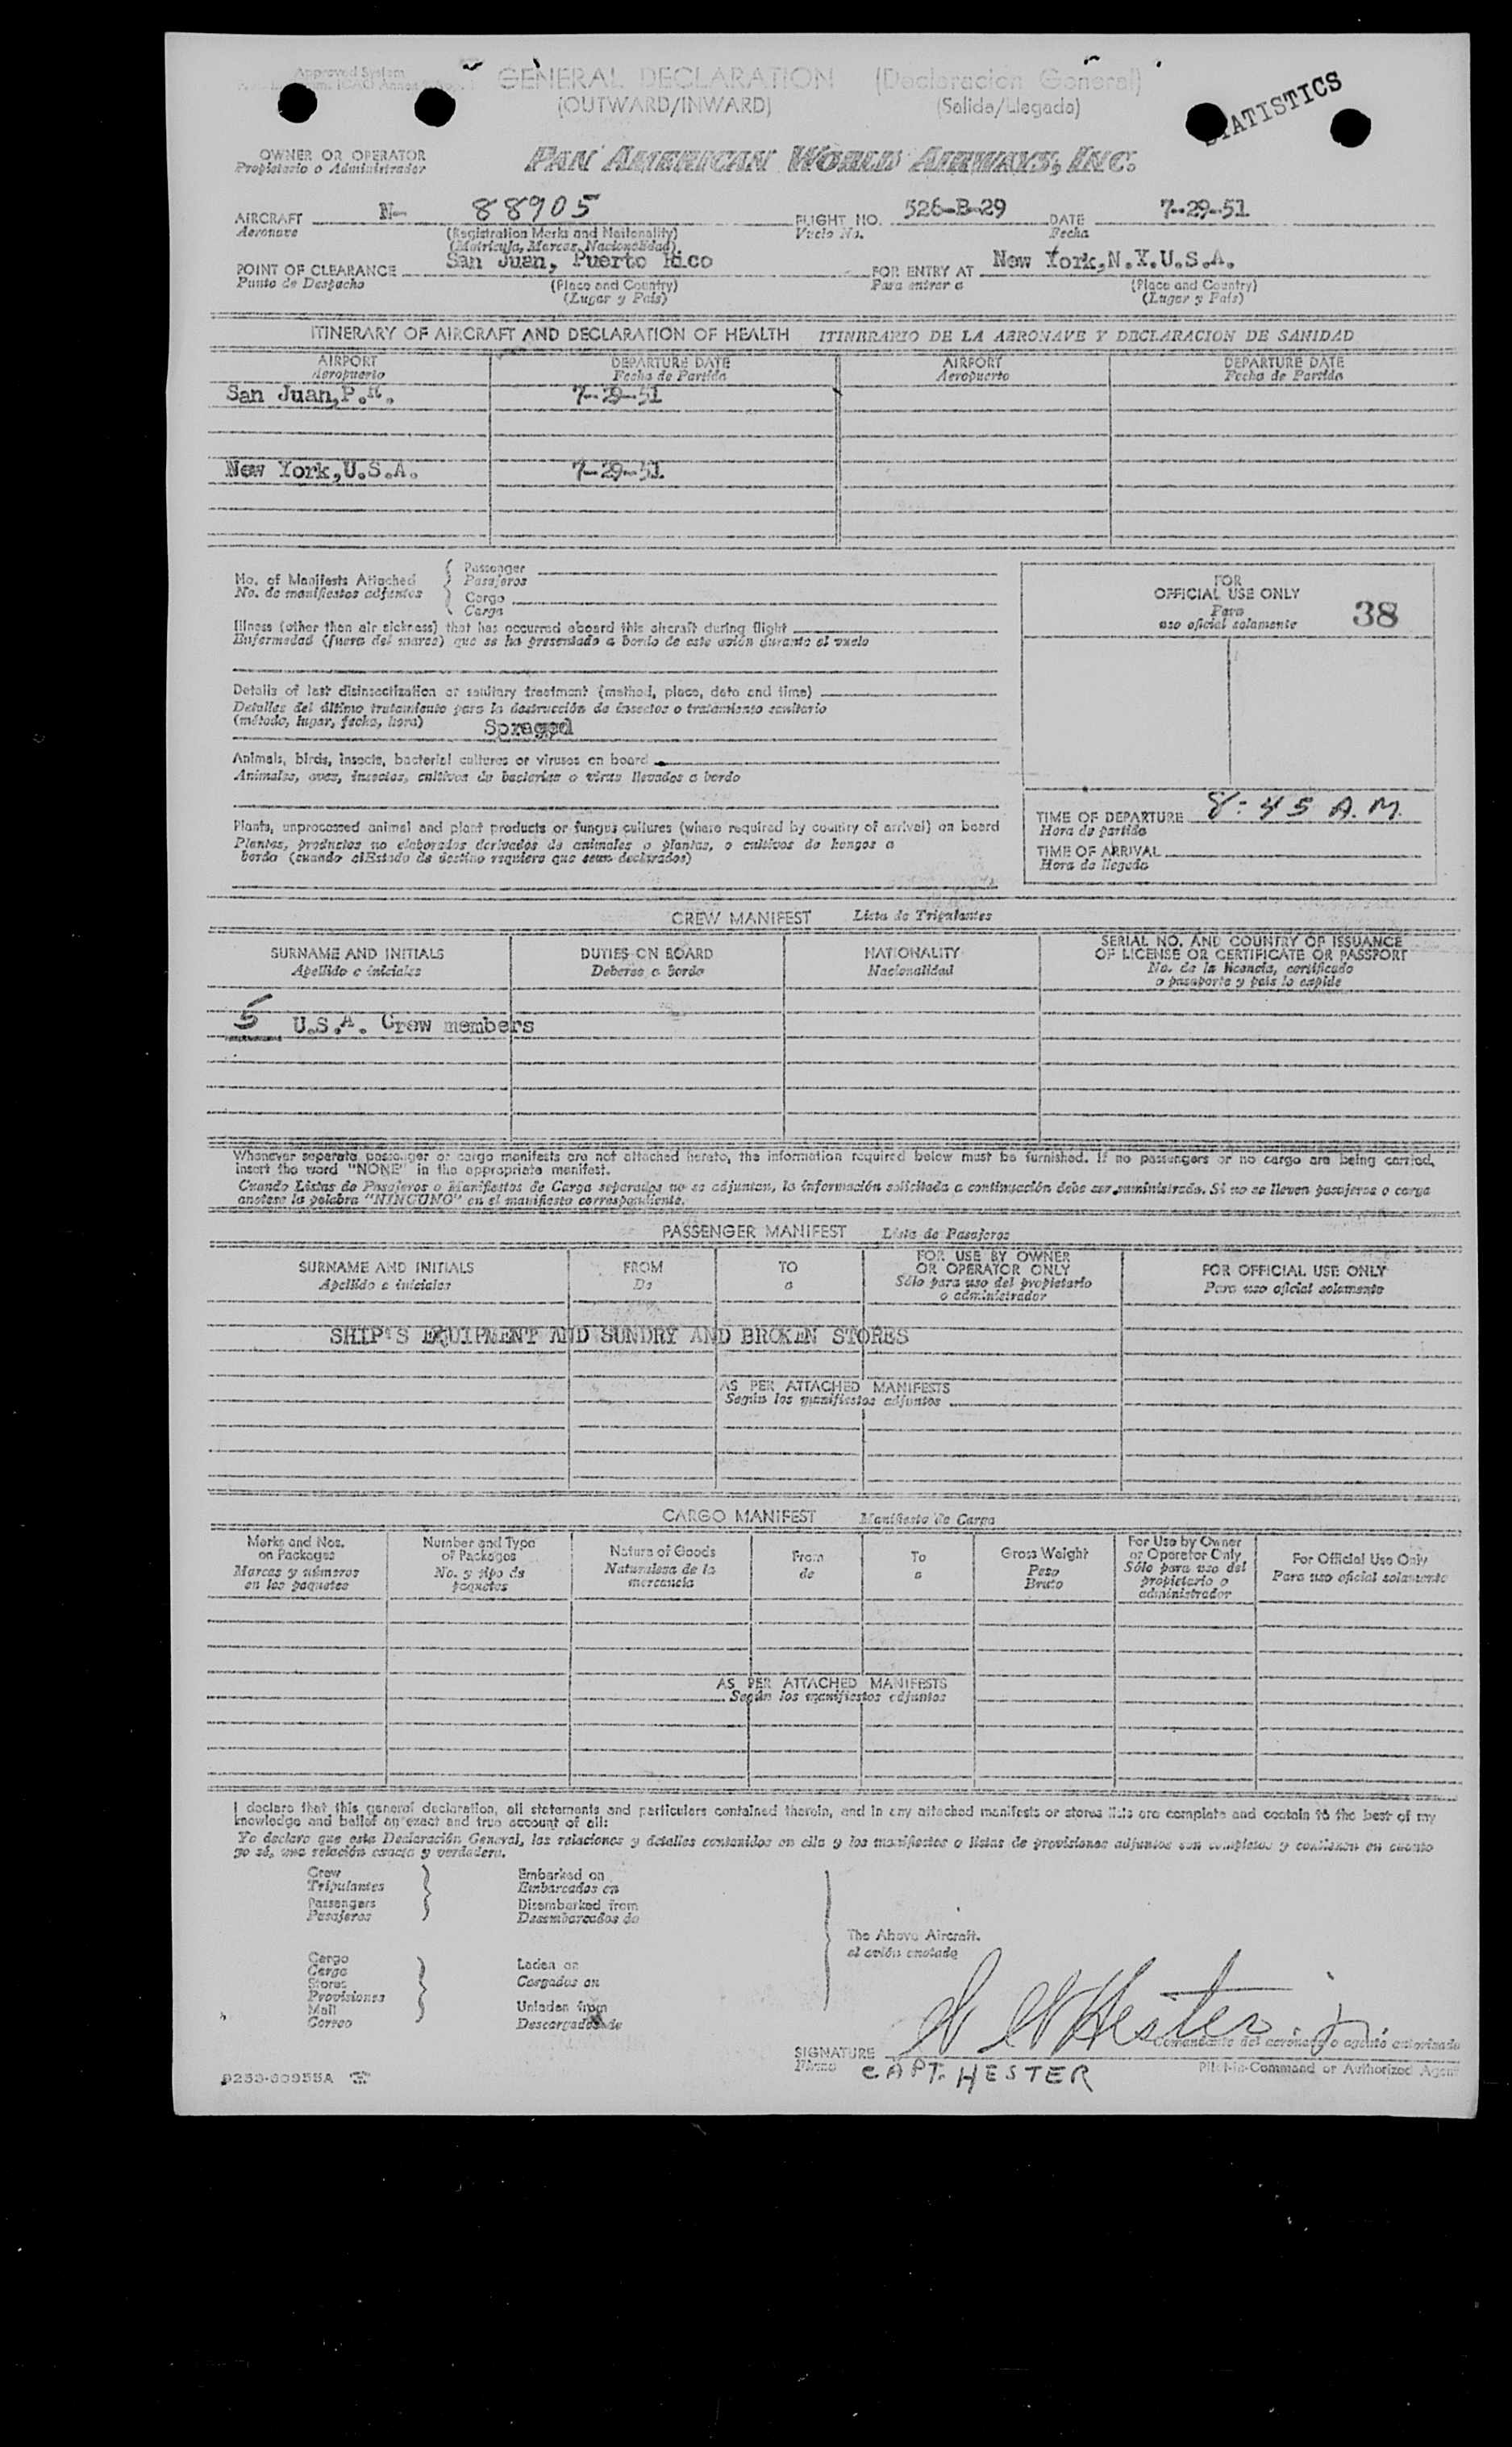 Approved System
GENERAL DECLARATION (Declaracion General)
(OUTWARD/INWARD) (Salida/Llegada)
STATISTICS
OWNER OR OPERATOR
Propietario o Administrador
PAN AMERICAN WORLD AIRWAYS, INC.
AIRCRAFT N- 88905 FLIGHT NO. 526-B-29 DATE 7-29-51
Aeronave (Registration Marks and Nationality) Vuelo No. Fecha
(Matricula, Marcas, Nacionalidad)
POINT OF CLEARANCE San Juan, Puerto Rico FOR ENTRY AT New York,N.Y.U.S.A.
Punto de Despacho (Place and Country) Para entrar a (Place and Country)
(Lugar y País) (Lugar y País)
ITINERARY OF AIRCRAFT AND DECLARATION OF HEALTH ITINERARIO DE LA AERONAVE Y DECLARACION DE SANIDAD
AIRPORT DEPARTURE DATE AIRPORT DEPARTURE DATE
Aeropuerto Fecha de Partida Aeropuerto Fecha de Partida
San Juan,P.R. 7-29-51
New York,U.S.A. 7-29-51
No. of Manifests Attached
No. de manifiestos adjuntos
Passenger
Pasajeros
Cargo
Carga
Illness (other than air sickness) that has occurred aboard this aircraft during flight
Enfermedad (fuera del mareo) que se ha presentado a bordo de este avión durante el vuelo
Details of last disinsectization or sanitary treatment (method, place, date and time)
Detalles del último tratamiento para la destrucción de insectos o tratamiento sanitario
(método, lugar, fecha, hora) Sprayed
Animals, birds, insects, bacterial cultures or viruses on board
Animales, aves, insectos, cultivos de bacterias o virus llevados a bordo
Plants, unprocessed animal and plant products or fungus cultures (where required by country of arrival) on board
Plantas, productos no elaborados derivados de animales o plantas, o cultivos de hongos a
bordo (cuando el Estado de destino requiera que sean declarados)
FOR
OFFICIAL USE ONLY
Para
uso oficial solamente
38
TIME OF DEPARTURE 8:45 A.M.
Hora de partida
TIME OF ARRIVAL
Hora de llegada
CREW MANIFEST Lista de Tripulantes
SURNAME AND INITIALS DUTIES ON BOARD NATIONALITY SERIAL NO. AND COUNTRY OF ISSUANCE
OF LICENSE OR CERTIFICATE OR PASSPORT
Apellido e iniciales Deberes a bordo Nacionalidad No. de la licencia, certificado
o pasaporte y país lo expide
5 U.S.A. Crew members
Whenever separate passenger or cargo manifests are not attached hereto, the information required below must be furnished. If no passengers or no cargo are being carried,
insert the word "NONE" in the appropriate manifest.
Cuando Listas de Pasajeros o Manifiestos de Carga separados no se adjuntan, la información solicitada a continuación debe ser suministrada. Si no se llevan pasajeros o carga
anótese la palabra "NINGUNO" en el manifiesto correspondiente.
PASSENGER MANIFEST Lista de Pasajeros
SURNAME AND INITIALS FROM TO FOR USE BY OWNER
OR OPERATOR ONLY FOR OFFICIAL USE ONLY
Apellido e iniciales De a Sólo para uso del propietario
o administrador Para uso oficial solamente
SHIP'S EQUIPMENT AND SUNDRY AND BROKEN STORES
AS PER ATTACHED MANIFESTS
Según los manifiestos adjuntos
CARGO MANIFEST Manifiesto de Carga
Marks and Nos.
on Packages
Marcas y números
en los paquetes
Number and Type
of Packages
No. y tipo de
paquetes
Nature of Goods
Naturalesa de la
mercancia
From
de
To
a
Gross Weight
Peso
Bruto
For Use by Owner
or Operator Only
Sólo para uso del
propietario o
administrador
For Official Use Only
Para uso oficial solamente
AS PER ATTACHED MANIFESTS
Según los manifiestos adjuntos
I declare that this general declaration, all statements and particulars contained therein, and in any attached manifests or stores lists are complete and contain to the best of my
knowledge and belief an exact and true account of all:
Yo declaro que esta Declaración General, las relaciones y detalles contenidos en ella y los manifiestos o listas de provisiones adjuntos son completos y contienen en cuanto
yo sé, una relación exacta y verdadera.
Crew
Tripulantes
Passengers
Pasajeros
Embarked on
Embarcados en
Disembarked from
Desembarcados de
The Above Aircraft.
el avión anotado
Cargo
Carga
Stores
Provisiones
Mail
Correo
Laden on
Cargados en
Unladen from
Descargados de
Hester Jr.
Comandante del aeronave o agente autorizado
SIGNATURE
Firma
CAPT. HESTER
Pilot-in-Command or Authorized Agent